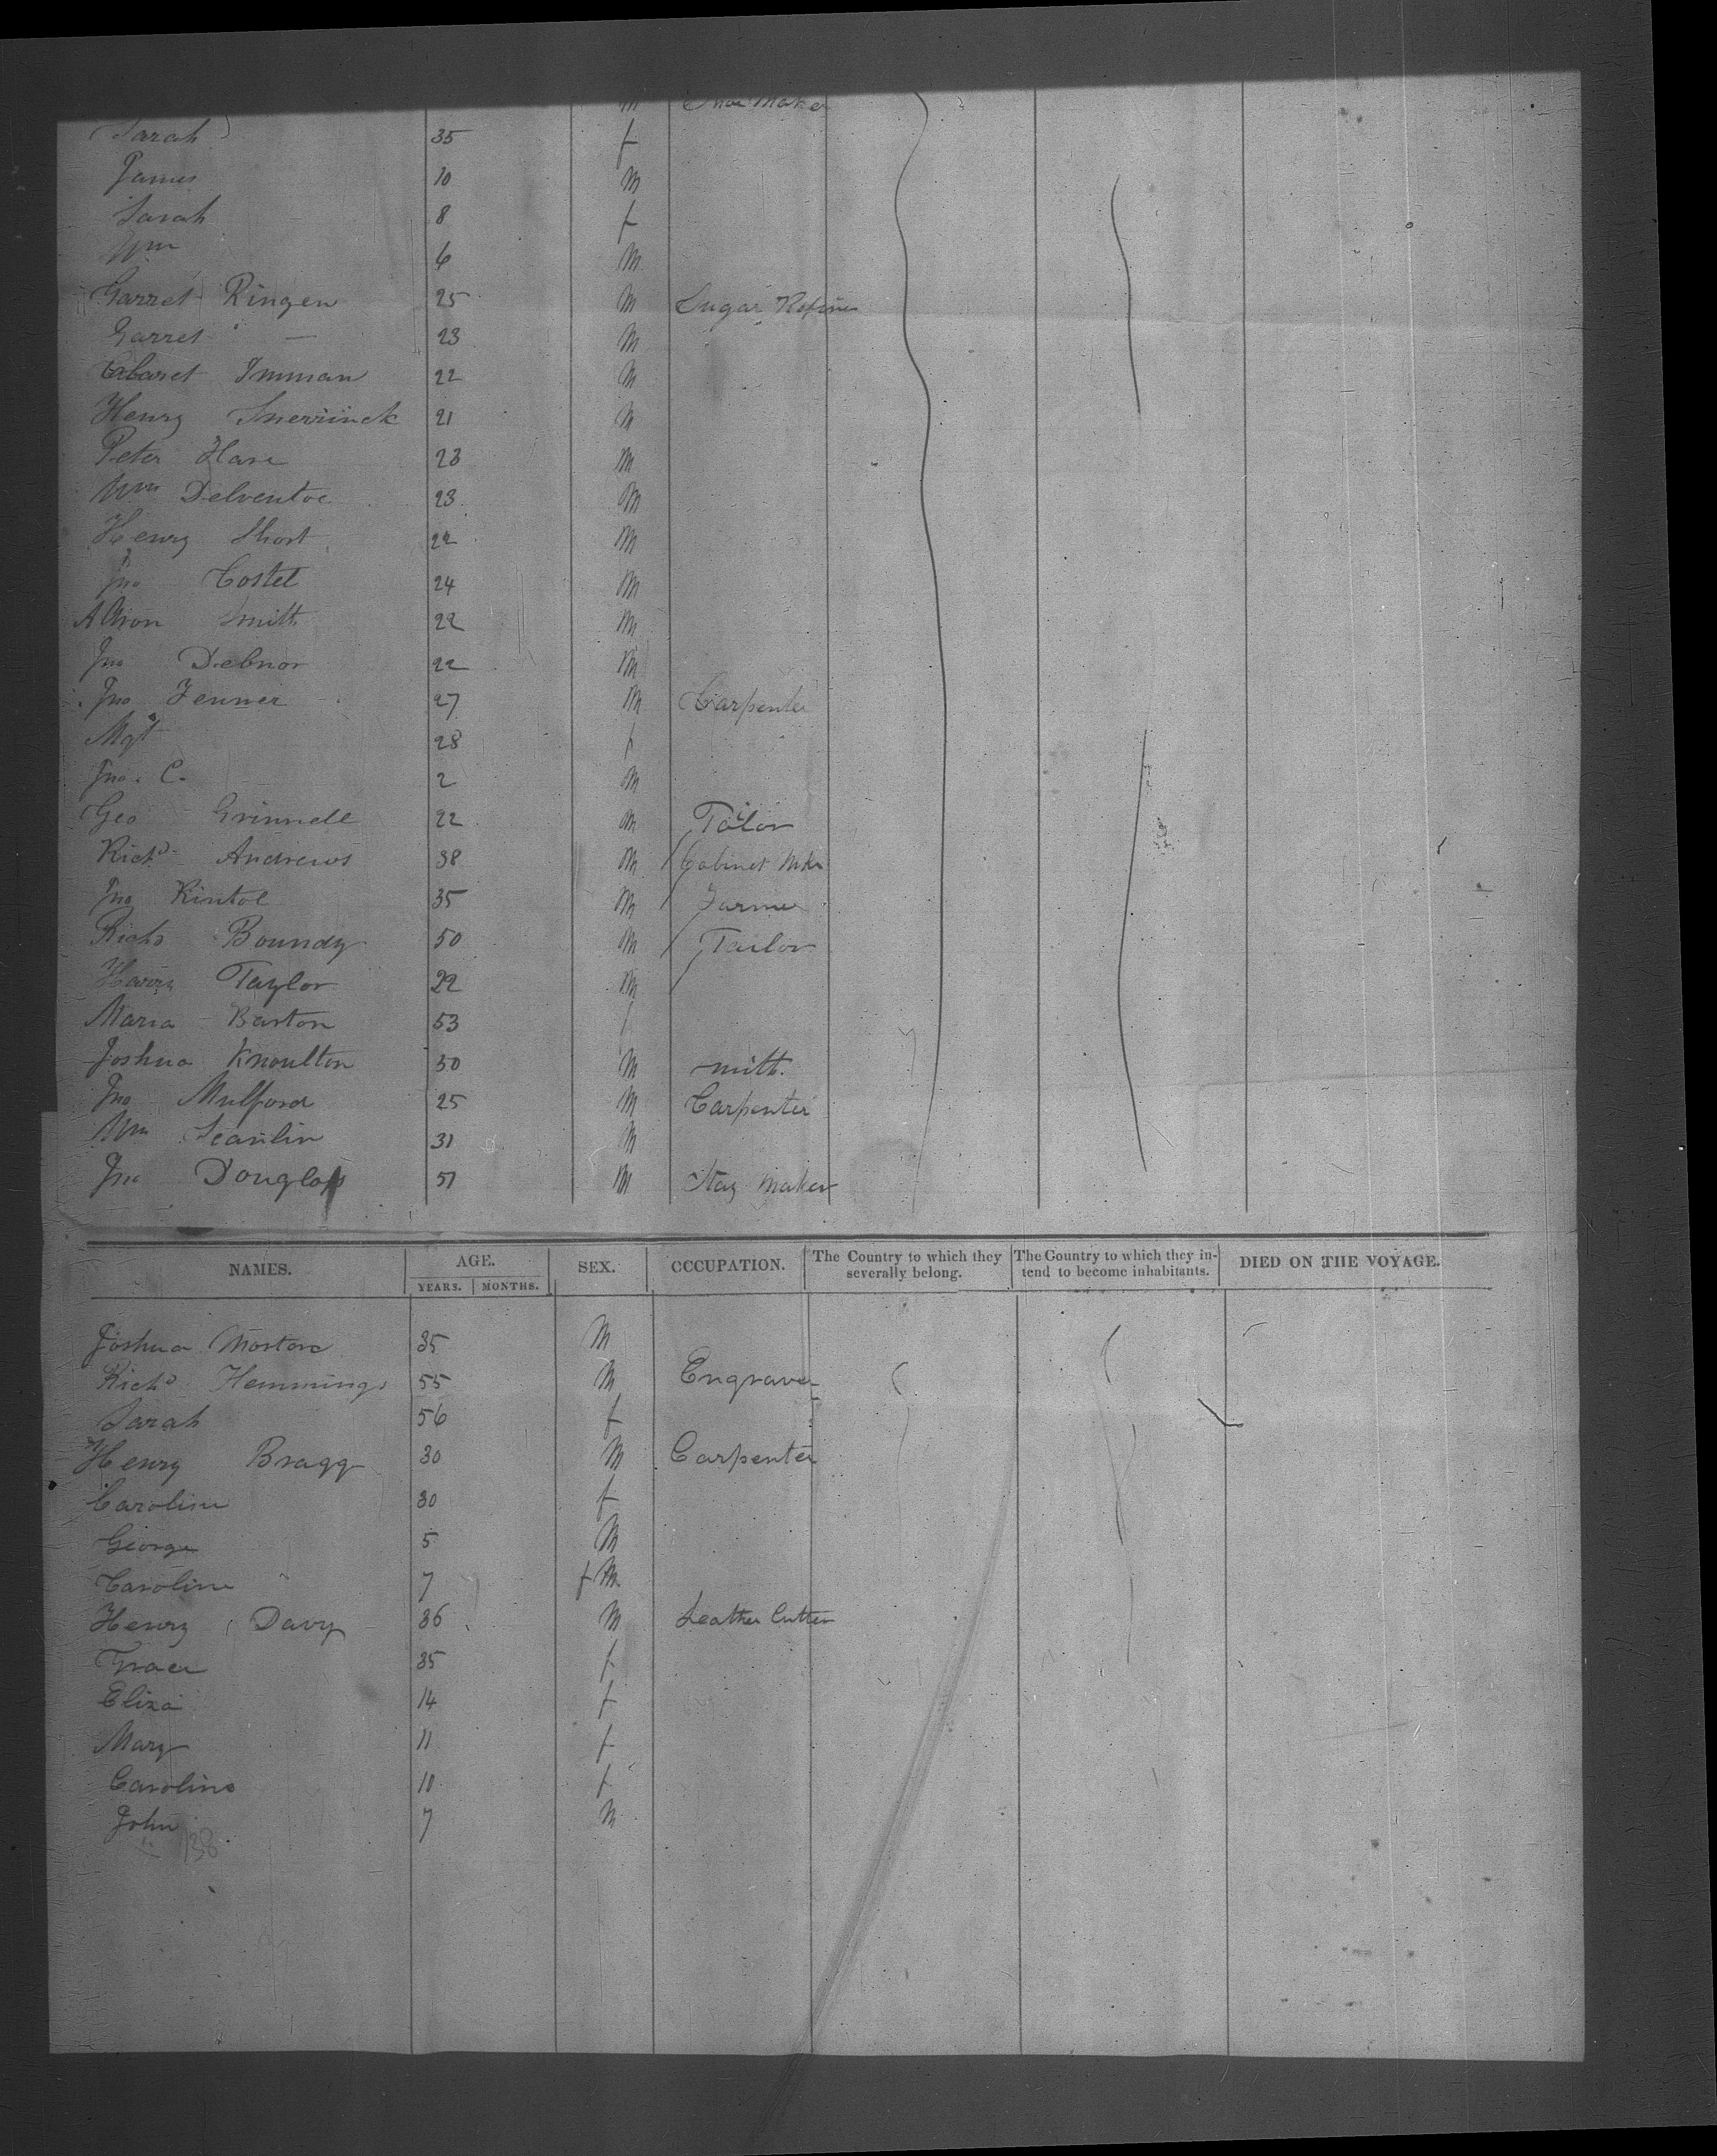 M Shoe Maker
Sarah 35 f
James 10 M
Sarah 8 f
Wm 6 M
Garret Ringen 25 M Sugar Refiner
Garret — 23 M
Imman 22 M
Henry 21 M
Peter Hare 23 M
Wm Delventoe 23 M
Henry Short 22 M
Jno Costel 24 M
Smith 22 M
Jno Debnor 22 M
Jno Fenner 27 M Carpenter
Mgt 28 f
Jno. C. 2 M
Geo Grinnell 22 M Tailor
Richd Andrews 38 M Cabinet Mkr
Jno Kintol 35 M Farmer
Richd Boundy 50 M Tailor
Harry Taylor 22 M
Maria Barton 53 f
Joshua Knoulton 30 M mith.
Jno Mulford 25 M Carpenter
Wm 31 M
Jno Douglass 51 M Stay Maker
NAMES. AGE. SEX. OCCUPATION. The Country to which they severally belong. The Country to which they intend to become inhabitants. DIED ON THE VOYAGE.
YEARS. MONTHS.
Joshua 35 M
Richd Hemmings 55 M Engraver
Sarah 56 f
Henry Bragg 30 M Carpenter
Caroline 30 f
George 5 M
Caroline 7 f M
Henry Davy 36 M Leather Cutter
Grace 35 f
Eliza 14 f
Mary 11 f
Caroline 10 f
John 7 M
138